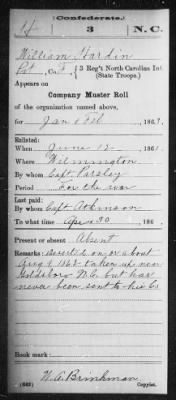 (Confederate.)
H 3 N. C.
William Hardin
Pvt, Co. F, 3 Reg't North Carolina Inf.
(State Troops.)
Appears on
Company Muster Roll
of the organization named above,
for Jan & Feb, 1863.
Enlisted:
When June 12, 1861.
Where Wilmington
By whom Capt. Parsley
Period For the war
Last paid:
By whom Capt Atkinson
To what time Apr 30, 186
Present or absent Absent
Remarks: Deserted on or about
Aug 9 1862 taken up near
Goldsboro N.C. but has
never been sent to his Co
Book mark:
W. A. Brinkman
(642) Copyist.